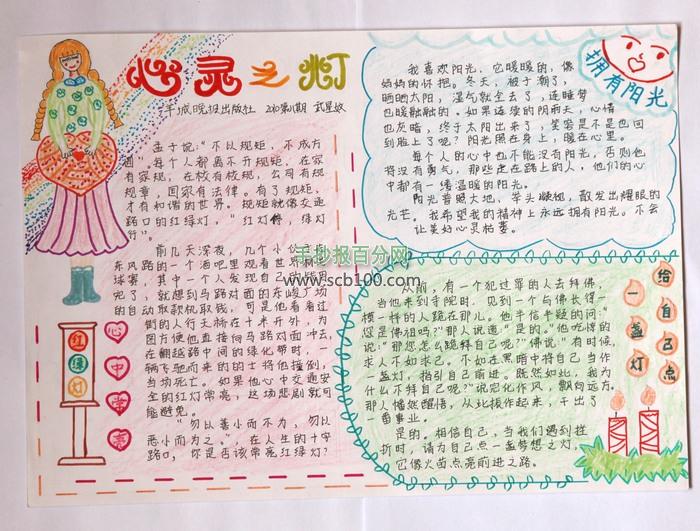 心灵之灯
羊城晚报出版社 2010第11期 武星妤
孟子说:“不以规矩,不成方
圆”。每个人都离不开规矩,在家
有家规,在校有校规,公司有规
规章,国家有法律。有了规矩,
才有和谐的世界。规矩就像交通
路口的红绿灯,“红灯停,绿灯
行”。
前几天深夜,几个小伙
东风路的一个酒吧里观看世界杯
球赛,其中一个人发现自己的
呢了,就想到马路对面的东峻广场
的自动取款机取钱,可是他看看过
街的人行天桥在十米开外,为
图方便他直接向马路对面冲去,
在翻越路中间的绿化带时,一
辆飞驰而来的的士将他撞倒,
当场死亡。如果他心中交通安
全的红灯常亮,这场悲剧就可
能避免。
“勿以善小而不为,勿以
恶小而为之。”在人生的十字
路口,你是否该常亮红绿灯?
红
绿
灯
心
中
常
亮
拥有阳光
我喜欢阳光,它暖暖的,像
妈妈的怀抱。冬天,被子潮了,
晒晒太阳,湿气就全去了,连睡梦
也暖融融的。如果连续的阴雨天,心情
也灰暗,终于太阳出来了,笑容是不是也回
到脸上了呢?阳光照在身上,暖在心里。
每个人的心中也不能没有阳光,否则他
将没有勇气,那些走在路上的人,他们的心
中都有一缕温暖的阳光。
阳光普照大地,举头凝视,散发出耀眼的
光芒。我希望我的精神上永远拥有阳光。不会
让美好心灵枯萎。
给自己点
一盏灯
从前,有一个犯过罪的人去拜佛,
当他来到寺院时,见到一个与佛长得一
模一样的人跪在那儿,他半信半疑的问:“
您是佛祖吗?”那人说道“是的。”他吃惊的
说:“那您怎么跪拜自己呢?”佛说:“有时候,
求人不如求己。不如在黑暗中将自己当作
一盏灯,指引自己前进。既然如此,我为
什么不拜自己呢?”说完化作风,飘向远方。
那人幡然醒悟,从此振作起来,干出了
一番事业。
是的。相信自己,当我们遇到挫
折时,请为自己点一盏梦想之灯,
它像火苗点亮前进之路。
手抄报百分网
www.scb100.com